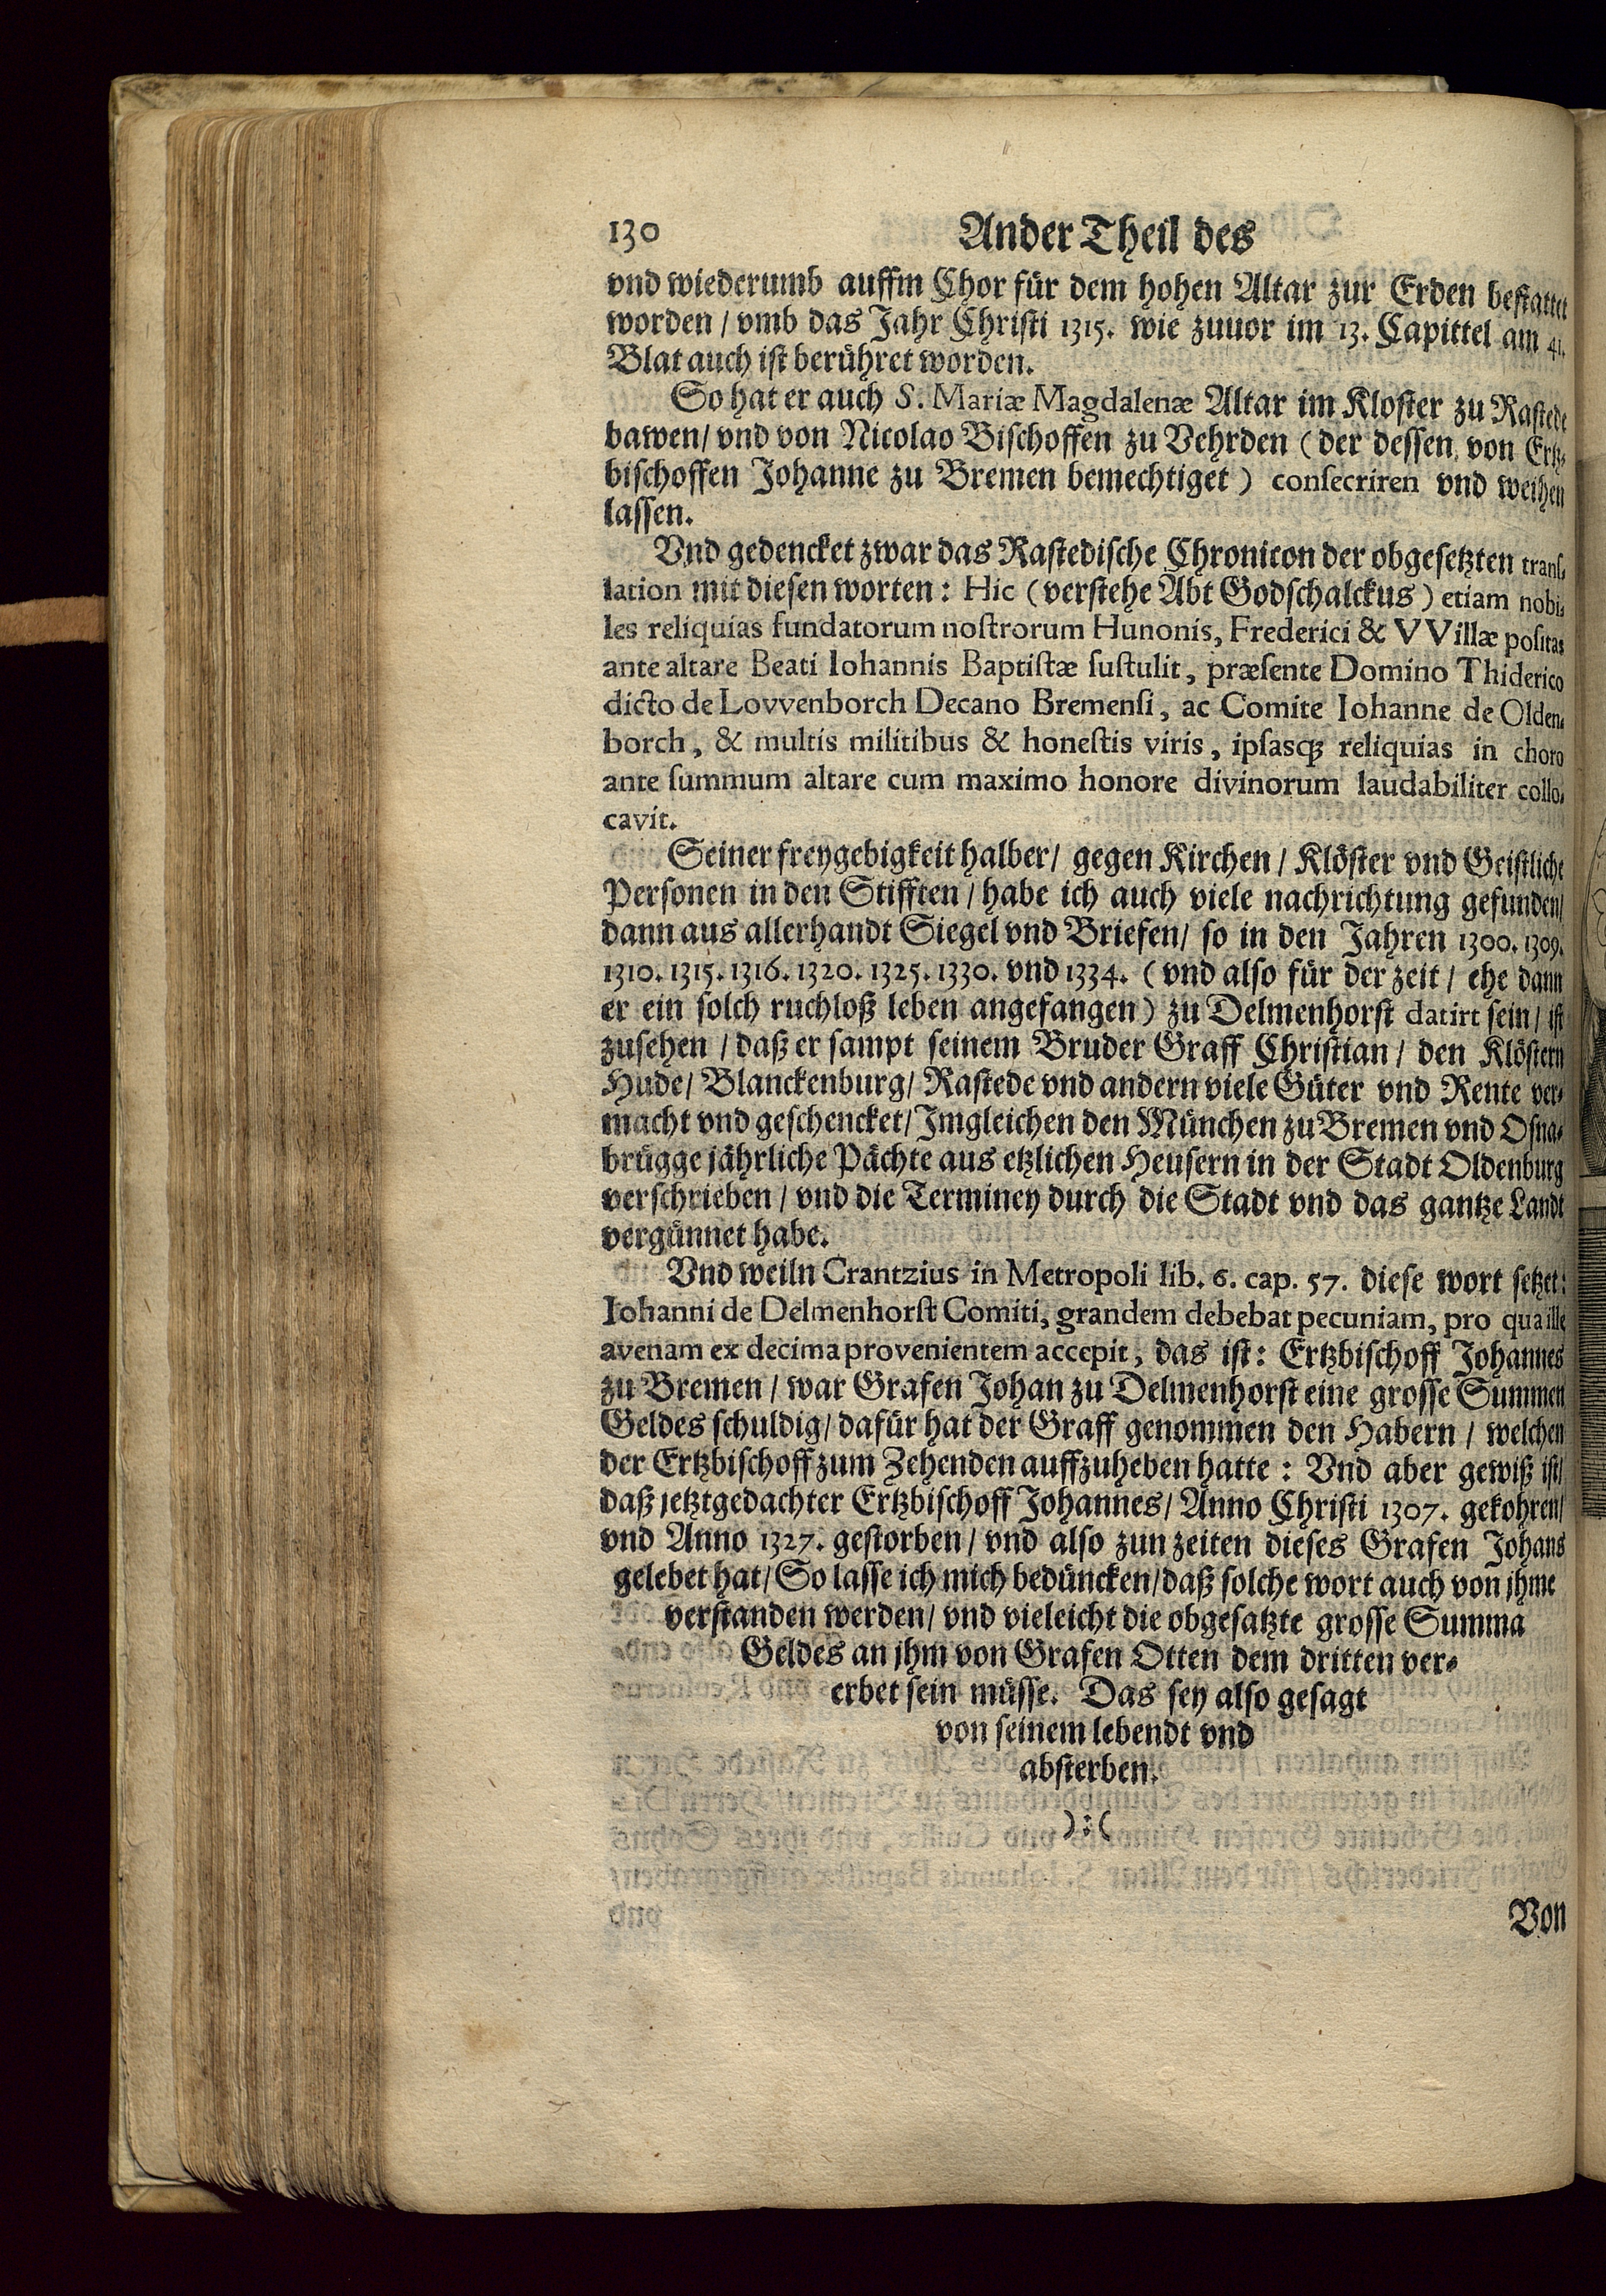 130 Ander Theil des
vnd wiederumb auffm Chor für dem hohen Altar zur Erden bestattet
worden / vmb das Jahr Christi 1315. wie zuuor im 13. Capittel am 41.
Blat auch ist berühret worden.
So hat er auch S. Mariæ Magdalenæ Altar im Kloster zu Rastede
bawen / vnd von Nicolao Bischoffen zu Vehrden (der dessen von Ertz-
bischoffen Johanne zu Bremen bemechtiget) consecriren vnd weihen
lassen.
Vnd gedencket zwar das Rastedische Chronicon der obgesetzten trans-
lation mit diesen worten: Hic (verstehe Abt Godschalckus) etiam nobi-
les reliquias fundatorum nostrorum Hunonis, Frederici & VVillæ positas
ante altare Beati Iohannis Baptistæ sustulit, præsente Domino Thiderico
dicto de Lovvenborch Decano Bremensi, ac Comite Iohanne de Olden-
borch, & multis militibus & honestis viris, ipsasq; reliquias in choro
ante summum altare cum maximo honore divinorum laudabiliter collo-
cavit.
Seiner freygebigkeit halber / gegen Kirchen / Klöster vnd Geistliche
Personen in den Stifften / habe ich auch viele nachrichtung gefunden /
dann aus allerhandt Siegel vnd Briefen / so in den Jahren 1300. 1309.
1310. 1315. 1316. 1320. 1325. 1330. vnd 1334. (vnd also für der zeit / ehe dann
er ein solch ruchloß leben angefangen) zu Delmenhorst datirt sein / ist
zusehen / daß er sampt seinem Bruder Graff Christian / den Klöstern
Hude / Blanckenburg / Rastede vnd andern viele Güter vnd Rente ver-
macht vnd geschencket / Imgleichen den München zu Bremen vnd Osna-
brügge jährliche Pächte aus etzlichen Heusern in der Stadt Oldenburg
verschrieben / vnd die Terminey durch die Stadt vnd das gantze Landt
vergünnet habe.
Vnd weiln Crantzius in Metropoli lib. 6. cap. 57. diese wort setzet:
Iohanni de Delmenhorst Comiti, grandem debebat pecuniam, pro qua ille
avenam ex decima provenientem accepit, das ist: Ertzbischoff Johannes
zu Bremen / war Grafen Johan zu Delmenhorst eine grosse Summen
Geldes schuldig / dafür hat der Graff genommen den Habern / welchen
der Ertzbischoff zum Zehenden auffzuheben hatte: Vnd aber gewiß ist /
daß jetztgedachter Ertzbischoff Johannes / Anno Christi 1307. gekohren /
vnd Anno 1327. gestorben / vnd also zun zeiten dieses Grafen Johans
gelebet hat / So lasse ich mich bedüncken / daß solche wort auch von jhme
verstanden werden / vnd vieleicht die obgesatzte grosse Summa
Geldes an jhm von Grafen Otten dem dritten ver-
erbet sein müsse. Das sey also gesagt
von seinem lebendt vnd
absterben.
):(
Von